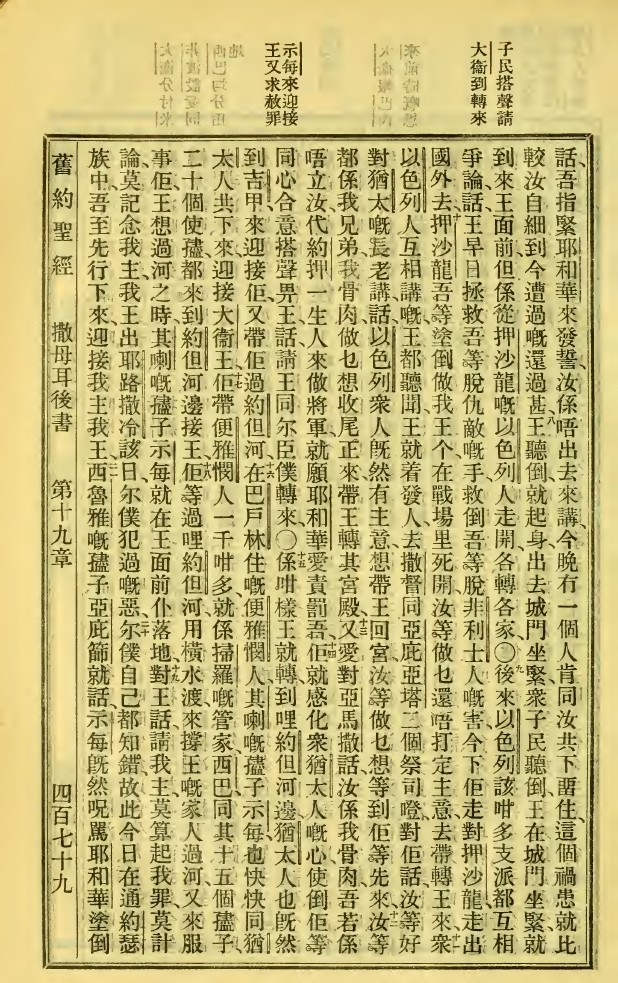 子民搭聲請
大衞到轉來
示每來迎接
王又求赦罪
話、吾指緊耶和華來發誓、汝係唔出去來講、今晚有一個人肯同汝共下畱住、這個禍患就比
較汝自細到今遭過嘅還過甚、王聽倒就起身出去城門坐緊、衆子民聽倒王在城門坐緊、就
到來王面前、但係從押沙龍嘅以色列人走開各轉各家、〇後來以色列該咁多支派都互相
爭論、話、王早日拯救吾等脫仇敵嘅手、救倒吾等脫非利士人嘅害、今下佢走對押沙龍走出
國外去、押沙龍吾等塗倒做我王个、在戰場里死開、汝等做乜還唔打定主意去帶轉王來、衆
以色列人互相講嘅、王都聽聞、王就着發人去撒督同亞庇亞塔二個祭司嗰、對佢話、汝等好
對猶太嘅長老講、話、以色列衆人旣然有主意想帶王回宮、汝等做乜想等到佢等先來、汝等
都係我兄弟、我骨肉、做乜想收尾正來帶王轉其宮殿、又愛對亞馬撒話、汝係我骨肉、吾若係
唔立汝代約押一生人來做將軍、就願耶和華愛責罰吾、佢就感化衆猶太人嘅心、使倒佢等
同心合意、搭聲畀王、話、請王同尔臣僕轉來、〇係咁樣王就轉、到哩約但河邊、猶太人也旣然
到吉甲來迎接佢、又帶佢過約但河、在巴戶林住嘅便雅憫人其喇嘅孻子示每、也快快同猶
太人共下來迎接大衞王、佢帶便雅憫人一千咁多、就係掃羅嘅管家西巴、同其十五個孻子、
二十個使孻都來到約但河邊接王、佢等過哩約但河、用橫水渡來撐王嘅家人過河、又來服
事佢、王想過河之時、其喇嘅孻子示每、就在王面前仆落地、對王話、請我主莫算起我罪、莫計
論、莫記念我主我王出耶路撒冷該日、尔僕犯過嘅惡、尔僕自己都知錯、故此今日在通約瑟
族中、吾至先行下來迎接我主我王、西魯雅嘅孻子亞庇篩就話、示每旣然呪罵耶和華塗倒
舊約聖經　撒母耳後書　第十九章　四百七十九